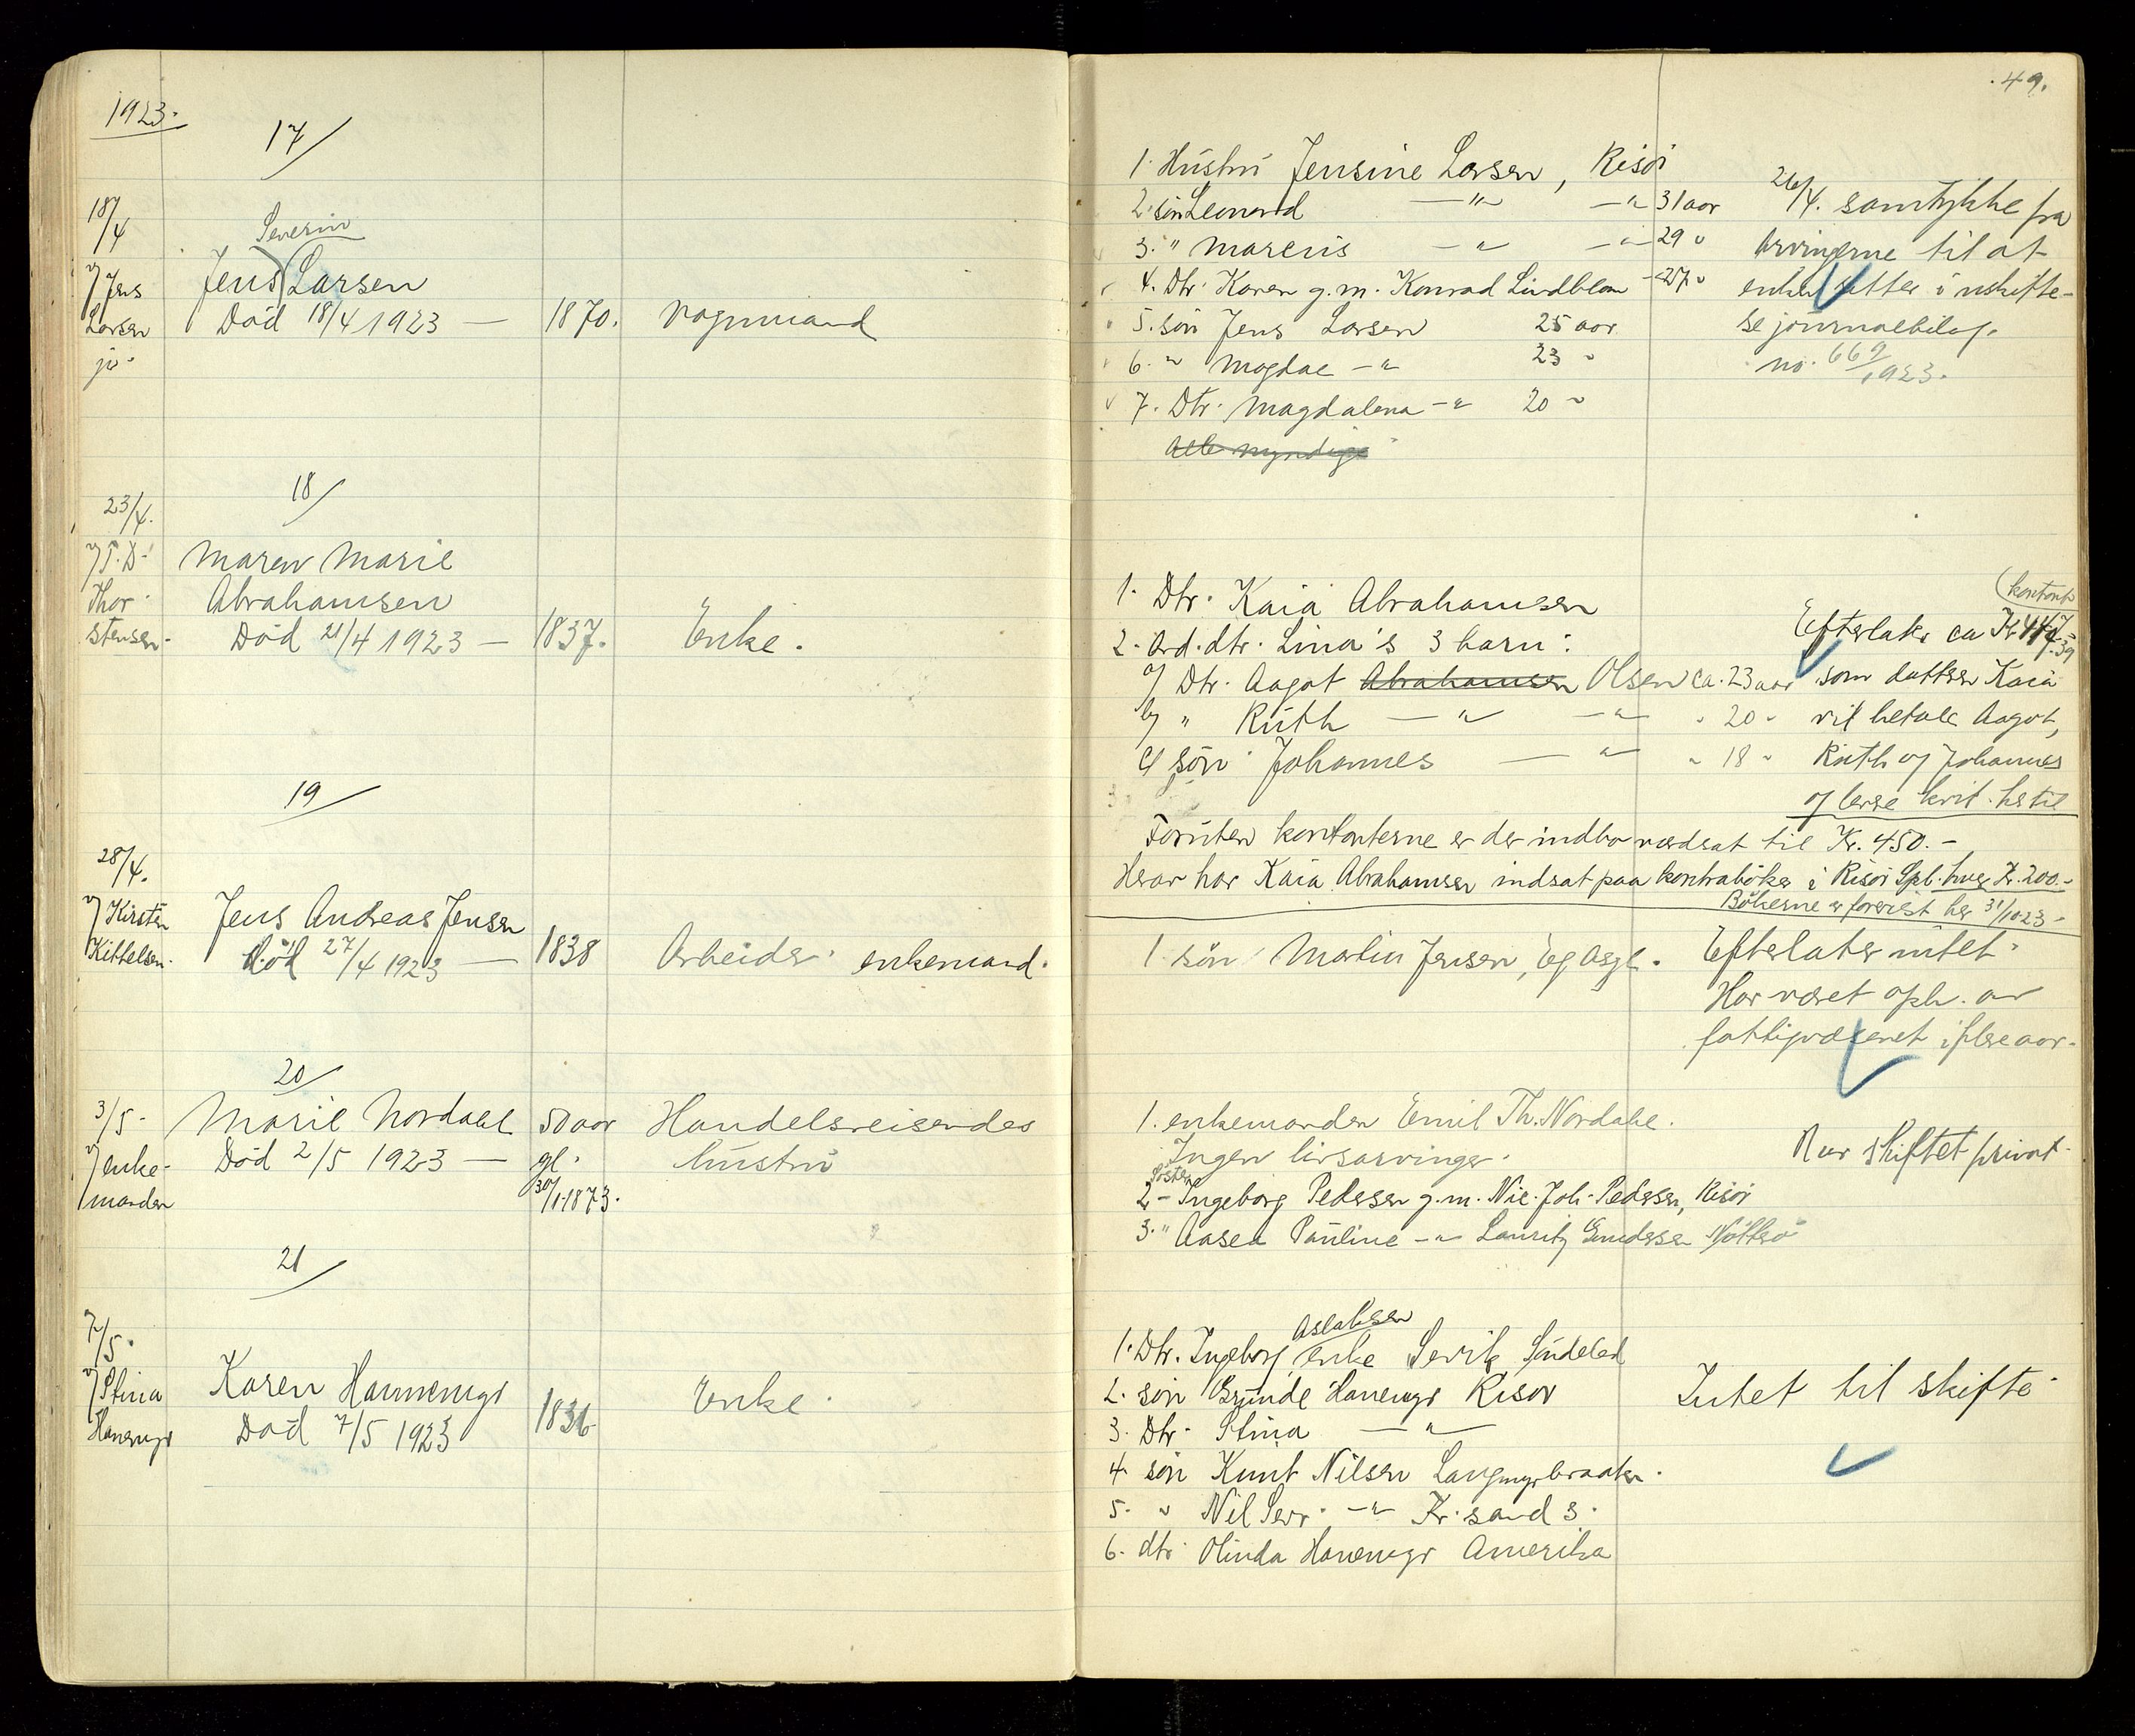 1923.
17/
18/4
v/ Jens
Larsen
jr.
Severin
Jens Larsen
Död 18/4 1923 —
1870.
Vognmand
18/
23/4.
v/ T.D.
Thor-
stensen.
Maren Marie
Abrahamsen
Död 21/4 1923 —
1837.
Enke.
19/
28/4.
v/ Kirsten
Kittelsen.
Jens Andreas Jensen
död 27/4 1923 —
1838
Arbeider enkemand.
20/
3/5-
v/ enke-
manden
Marie Nordahl
Död 2/5 1923 —
50 aar
gl.
30/1-1873.
Handelsreisendes
hustru
21/
7/5.
v/ Stina
Hanemyr
Karen Hannemyr
Död 7/5 1923
1836
Enke.
49.
1. Hustru Jensine Larsen, Risör
2. sön Leonard —"— —"— 31 aar
3. " Marcus —"— —"— 29 "
4. Dtr. Karen g.m. Konrad Lindblom — 27 "
5. sön Jens Larsen 25 aar
6. " Magdae —"— 23 "
7. Dtr. Magdalena —"— 20 "
Alle myndige
26/4. samtykke fra
arvingerne til at
enken sitter i uskifte-
se journalbilag.
no. 669/1923.
1. Dtr. Kaia Abrahamsen
2. Avd. dtr. Lina's 3 barn:
a/ Dtr. Aagot Abrahamsen Olsen ca. 23 aar
b/ " Ruth —"— —"— " 20 "
c/ sön Johannes —"— " 18 "
(kontant
Efterlater ca Kr.
som datteren Kaia
vil betale Aagot,
Ruth og Johannes
og levere kvit. hertil
Foruten kontanterne er der indbo værdsat til Kr. 450.-
Herav har Kaia Abrahamsen indsat paa kontraböker i Risör Spb. hver Kr. 200.-
Bökerne er forevist her 31/10 23-
1. sön Martin Jensen, Eg Asgl.
Efterlater intet.
Har været oph. av
fattigvæsenet i flere aar.
1. enkemanden Emil Th. Nordahl.
Ingen livsarvinger.
Söster
2- Ingeborg Pedersen g.m. Nic. Joh. Pedersen, Risör
3. " Aasea Pauline —"— Lauritz Gundersen Nötterö
Blir skiftet privat.
Aslaksen
1. Dtr. Ingeborg enke Sevik Söndeled
2. sön Grunde Hanemyr Risör
3. Dtr. Stina —"—
4. sön Knut Nilsen Langmyrbraaten.
5. " Nil Sevr. —"— Kr. sand S.
6. dtr. Olinda Hanemyr Amerika
Intet til skifte.